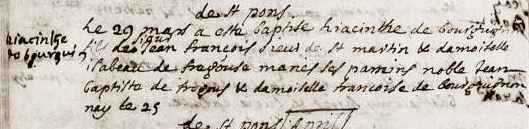 de st pons
hiacinthe
de bourguig
Le 29 mars a esté baptisé hiacinthe de bourguignon
fils de sieur Jean francois sieur de st martin & damoiselle
isabeau de fregouse mariés ses parrins noble Jean
baptiste de & damoiselle francoise de bourguignon
nay le 25
de st pons Apvril